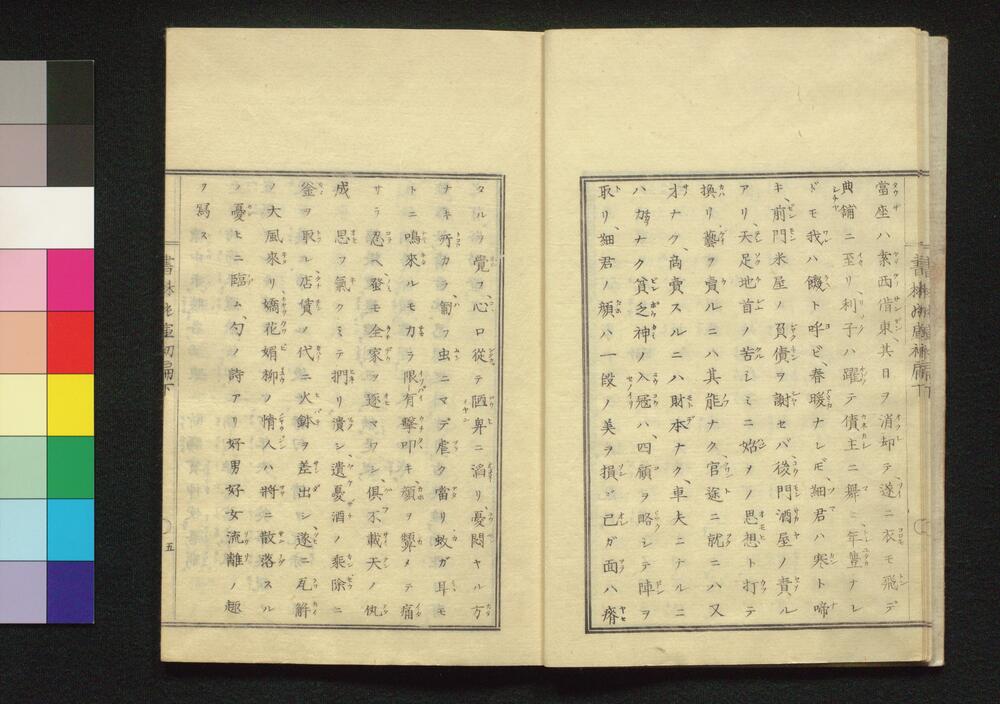 當座ハ東西借東其日ヲ消却テ遂ニ衣モ飛デ
典舗ニ至リ利子ハ躍テ債主ニ舞ヒ年豊ナレ
ドモ我ハ饑ト呼ビ春暖ナレ𪜈細君ハ寒ト啼
キ前門米屋ノ負債ヲ謝セバ後門酒屋ノ責ル
アリ天足地首ノ苦シミニ始メノ思想ト打テ
換リ藝ヲ賣ルニハ其能ナク官途ニ就ニハ又
才ナク商賣スルニハ財本ナク車夫ニナルニ
ハ力ナク貧乏神ノ入冦ハ四顧ヲ略シテ陣ヲ
取リ細君ノ顔ハ一段ノ美ヲ損ジ己ガ面ハ瘠
タルヲ覺フ心ロ從テ陋鄙ニ滔リ憂悶ヤル方
ナキ所カラ匍フ虫ニマデ虐ク當リ蚊ガ耳モ
トニ鳴來ルモカラ限有擊叩キ顔ヲ顰メテ痛
サヲ忍ベ蚤モ全家ヲ逐マワシ俱不載天ノ仇
成 思フ氣クミテ捫リ潰シ遺憂酒ノ乘除ニ
釜ヲ取ル店債ノ代ニ火鉢ヲ差出シ遂ニ瓦解
ノ大風來リ嬌花媚柳ノ情人ハ將ニ散落スル
ノ憂モニ臨ム勾ノ詩アリ好男好女流離ノ趣
ヲ寫ス
五